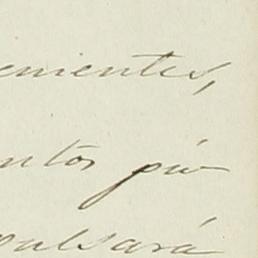 enientes,
ntos pú
pulsará